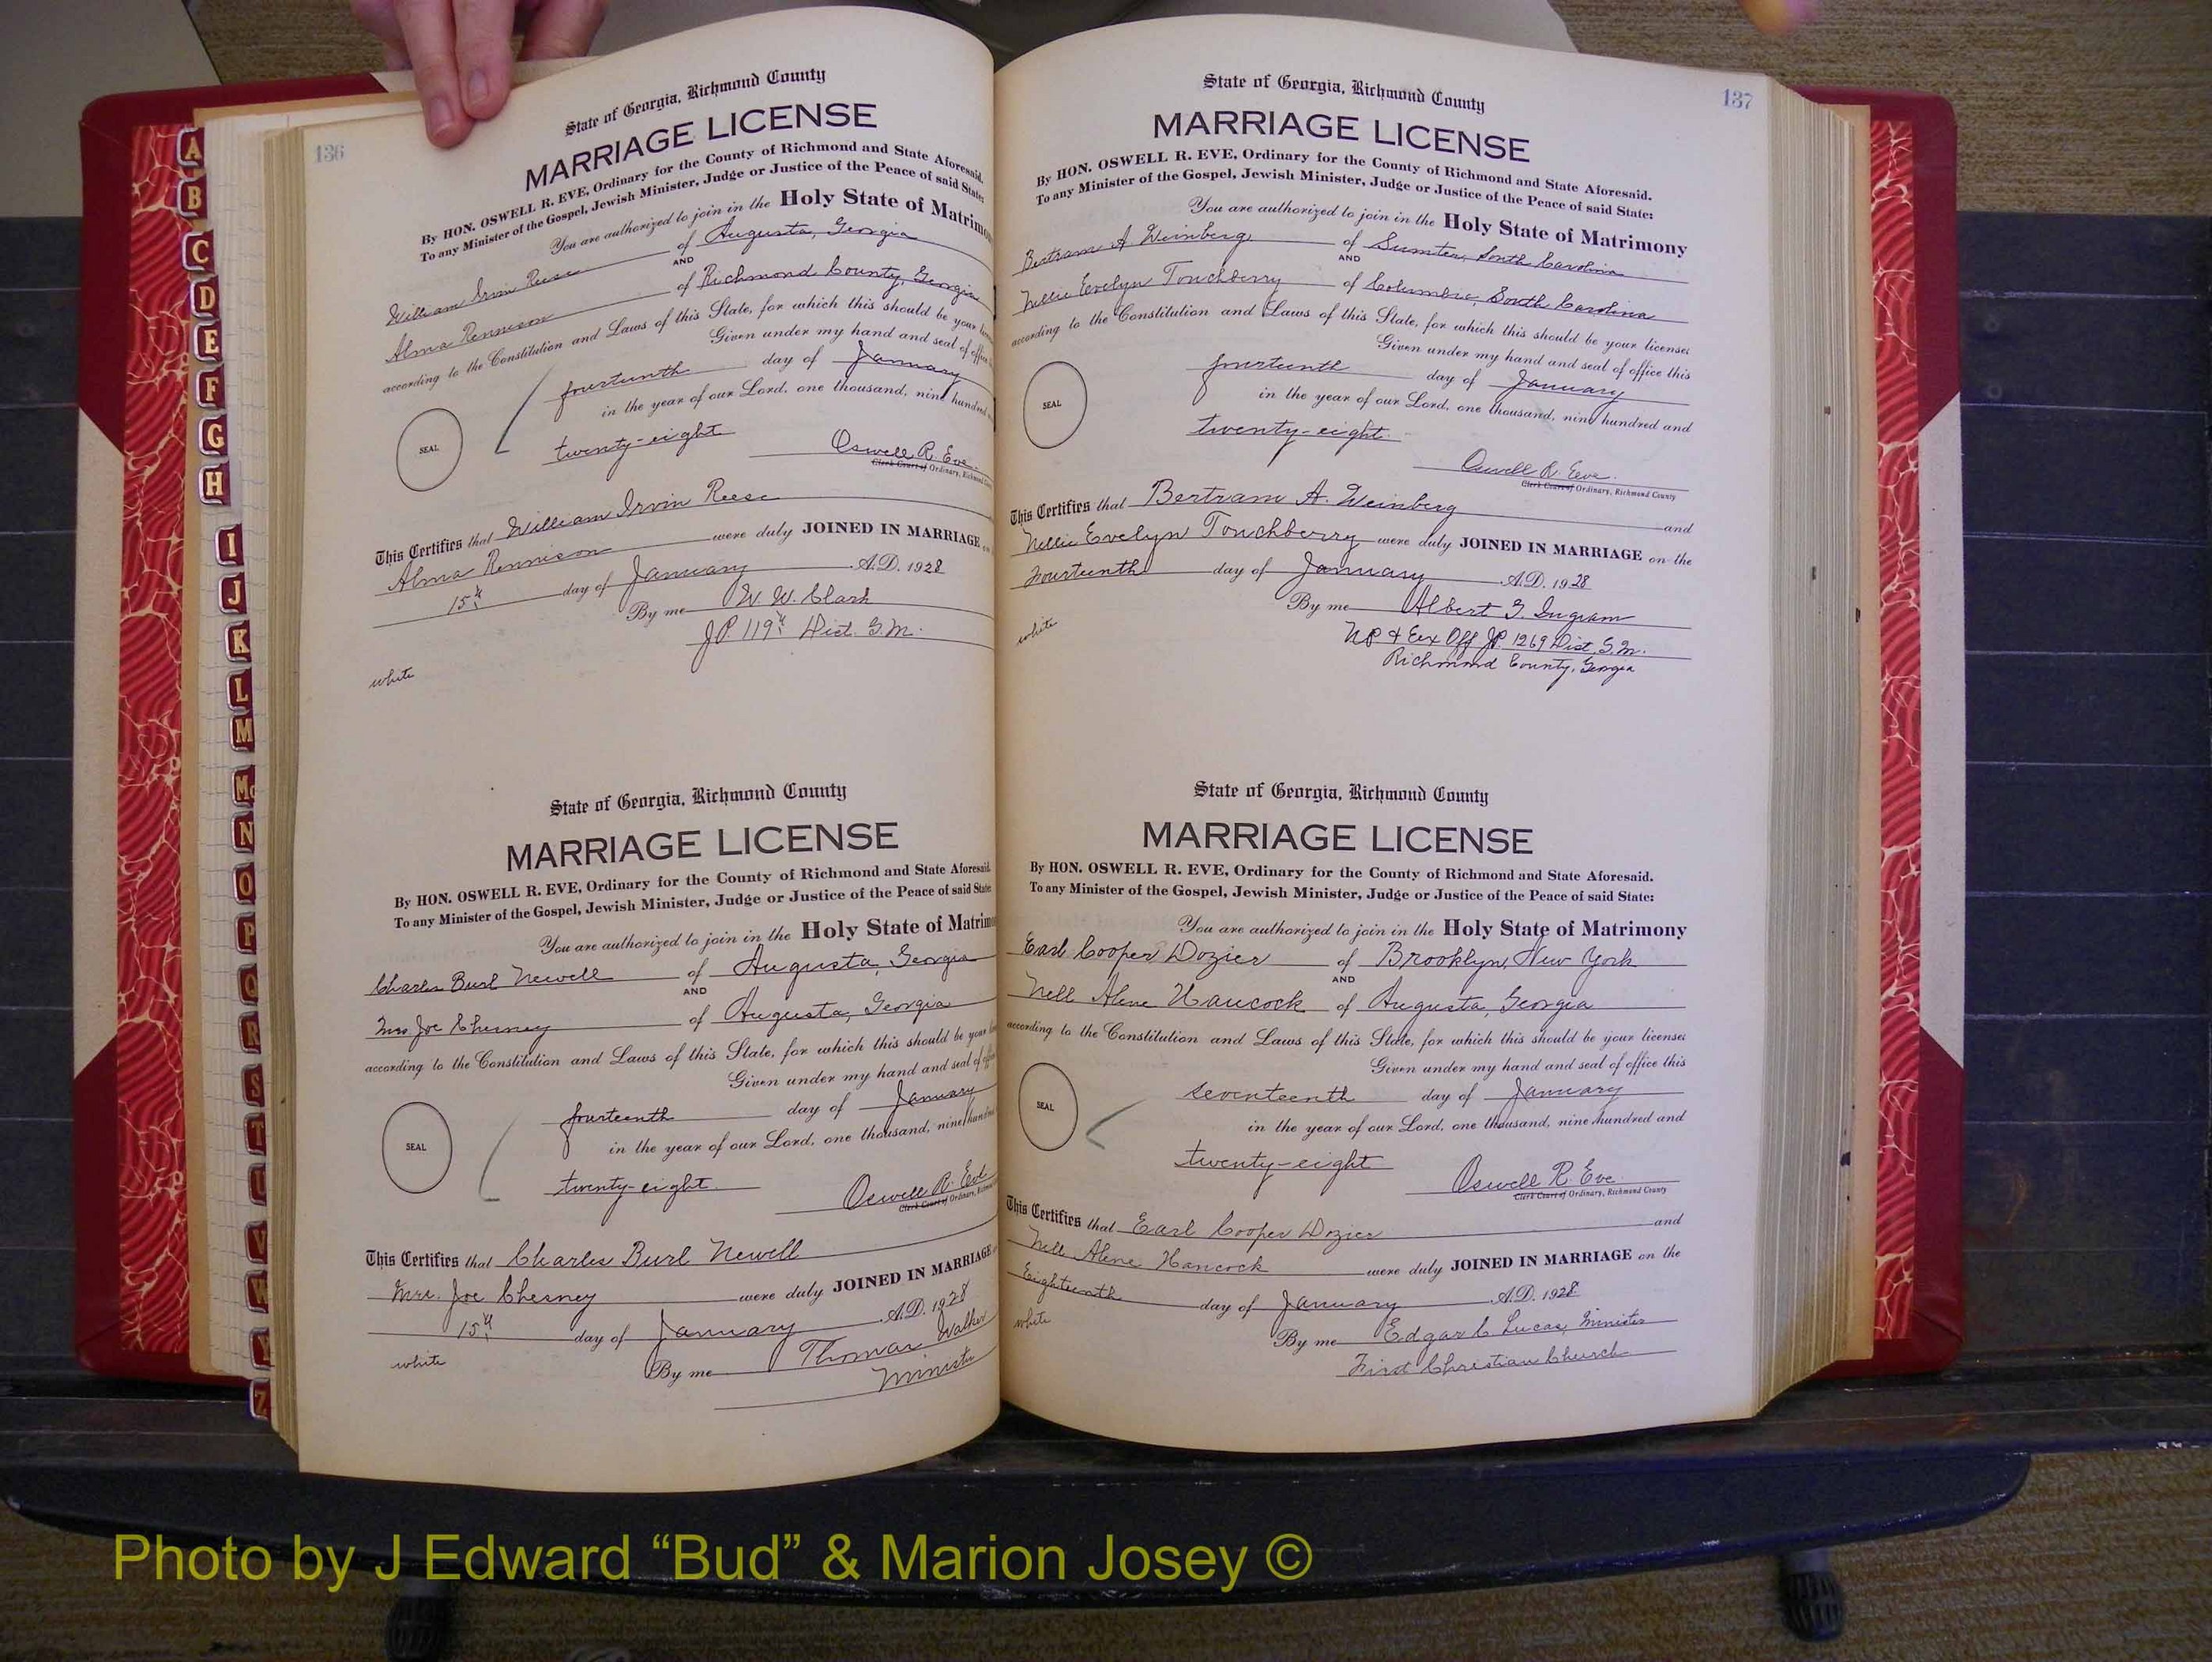 136
State of Georgia, Richmond County
MARRIAGE LICENSE
By HON. OSWELL R. EVE, Ordinary for the County of Richmond and State Aforesaid.
To any Minister of the Gospel, Jewish Minister, Judge or Justice of the Peace of said State:
You are authorized to join in the Holy State of Matrimony
William Irvin Reese of Augusta, Georgia
AND
Alma Rennison of Richmond County, Georgia
according to the Constitution and Laws of this State, for which this should be your
Given under my hand and seal of office
fourteenth day of January
in the year of our Lord, one thousand, nine hundred
SEAL
twenty-eight
Oswell R. Eve
Clerk Court of Ordinary, Richmond
This Certifies that William Irvin Reese
Alma Rennison were duly JOINED IN MARRIAGE
15th day of January A.D. 1928
By me W. W. Clark
J.P. 119th Dist. G.M.
white
State of Georgia, Richmond County
MARRIAGE LICENSE
By HON. OSWELL R. EVE, Ordinary for the County of Richmond and State Aforesaid.
To any Minister of the Gospel, Jewish Minister, Judge or Justice of the Peace of said State:
You are authorized to join in the Holy State of Matrim
Charles Burl Newell of Augusta, Georgia
AND
Mrs. Joe Chesney of Augusta, Georgia
according to the Constitution and Laws of this State, for which this should be your
Given under my hand and seal of
fourteenth day of January
in the year of our Lord, one thousand, nine hundred
SEAL
twenty-eight
Oswell R. Eve
Clerk Court of Ordinary,
This Certifies that Charles Burl Newell
Mrs. Joe Chesney were duly JOINED IN MARRIAGE
15th day of January A.D. 1928
By me Thomas Walker
Minister
white
137
State of Georgia, Richmond County
MARRIAGE LICENSE
By HON. OSWELL R. EVE, Ordinary for the County of Richmond and State Aforesaid.
To any Minister of the Gospel, Jewish Minister, Judge or Justice of the Peace of said State:
You are authorized to join in the Holy State of Matrimony
Bertram A. Weinberg of Sumter, South Carolina
AND
Nellie Evelyn Touchberry of Columbia, South Carolina
according to the Constitution and Laws of this State, for which this should be your license:
Given under my hand and seal of office this
fourteenth day of January
in the year of our Lord, one thousand, nine hundred and
SEAL
twenty-eight.
Oswell R. Eve.
Clerk Court of Ordinary, Richmond County
This Certifies that Bertram A. Weinberg and
Nellie Evelyn Touchberry were duly JOINED IN MARRIAGE on the
Fourteenth day of January A.D. 1928
By me Albert G. Ingram
NP & Ex Off JP. 1269 Dist. G.M.
Richmond County, Georgia
white
State of Georgia, Richmond County
MARRIAGE LICENSE
By HON. OSWELL R. EVE, Ordinary for the County of Richmond and State Aforesaid.
To any Minister of the Gospel, Jewish Minister, Judge or Justice of the Peace of said State:
You are authorized to join in the Holy State of Matrimony
Earl Cooper Dozier of Brooklyn, New York
AND
Nell Alene Hancock of Augusta, Georgia
according to the Constitution and Laws of this State, for which this should be your license:
Given under my hand and seal of office this
seventeenth day of January
in the year of our Lord, one thousand, nine hundred and
SEAL
twenty-eight
Oswell R. Eve
Clerk Court of Ordinary, Richmond County
This Certifies that Earl Cooper Dozier and
Nell Alene Hancock were duly JOINED IN MARRIAGE on the
Eighteenth day of January A.D. 1928
By me Edgar C Lucas, Minister
First Christian Church
white
A
B
C
D
E
F
G
H
I
J
K
L
M
Mc
N
O
P
Q
R
S
T
U
V
W
Y
Z
Photo by J Edward “Bud” & Marion Josey ©